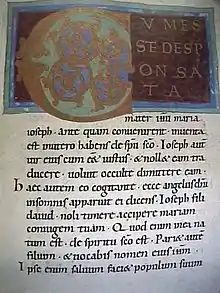 CVMES
SEDESP
ONSA
TA
mater iħu maria
ioseph · ante quam convenirent · inventa
est in utero habens de spu sco · Ioseph aut
vir eius cum eet iustus · et nollet eam tra
ducere · voluit occulte dimittere eam ·
haec autem eo cogitante · ecce angelus dni
in somnis apparuit ei dicens · Ioseph fili
david · noli timere accipere mariam
coniugem tuam · Quod enim in ea na
tum est · de spiritu sco est · Pariet autem
filium · et vocabis nomen eius iħm ·
Ipse enim salvum faciet populum suum